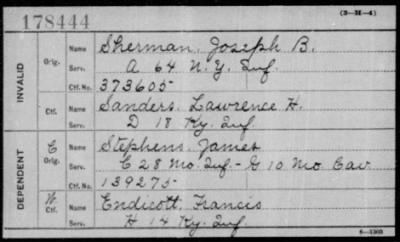 178444
(3-H-4)
INVALID
Orig. Name Sherman, Joseph B.
Serv. A 64 N.Y. Inf.
Ctf. No. 373605
Ctf. Name Sanders, Lawrence H.
Serv. D 18 Ky. Inf.
DEPENDENT
C Orig. Name Stephens, James
Serv. E 28 Mo. Inf - G 10 Mo. Cav
Ctf. No. 139275
W. Ctf. Name Endicott, Francis
Serv. H 14 Ky. Inf